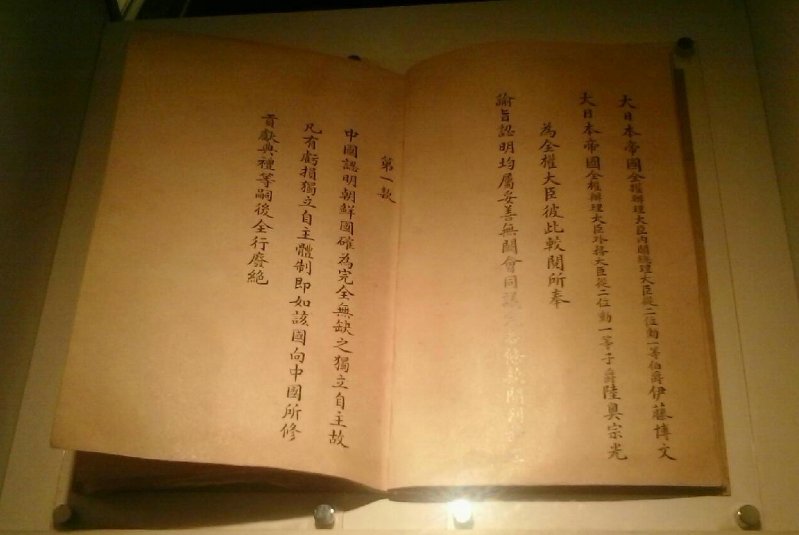 大日本帝國全權辦理大臣內閣總理大臣從二位勳一等伯爵伊藤博文
大日本帝國全權辦理大臣外務大臣從二位勳一等子爵陸奧宗光
為全權大臣彼此較閱所奉
諭旨認明均屬妥善無闕會同議各條款開列
第一款
中國認明朝鮮國確為完全無缺之獨立自主故
凡有虧損獨立自主體制即如該國向中國所修
貢獻典禮等嗣後全行廢絕